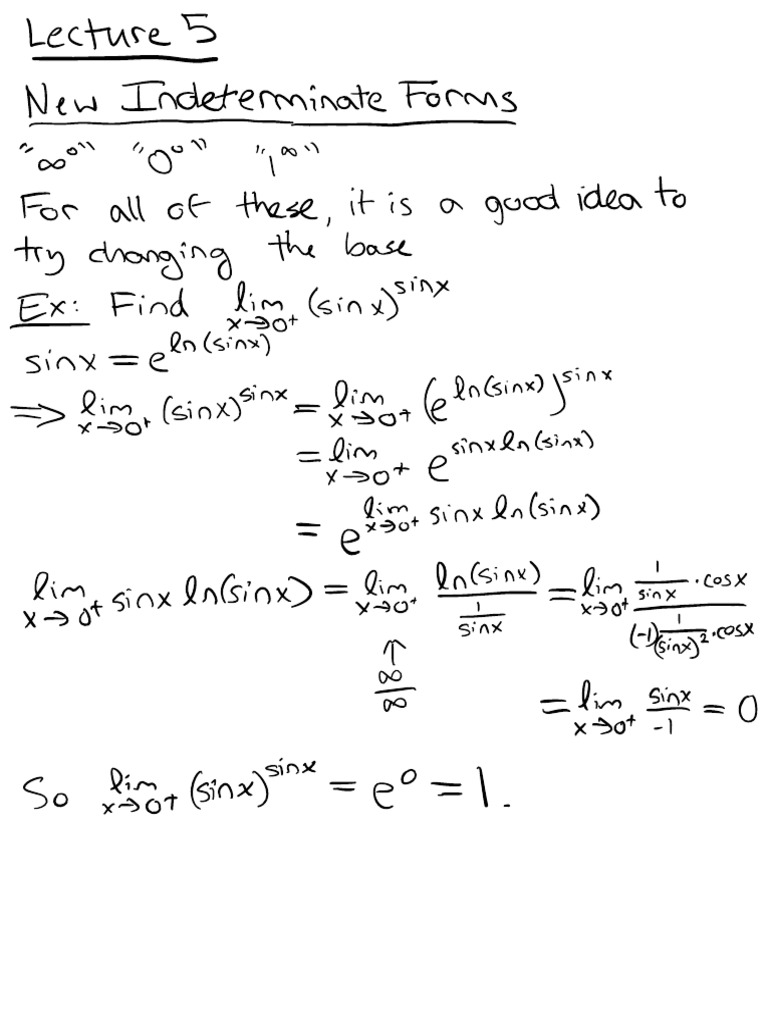 Lecture 5
New Indeterminate Forms
"∞⁰" "0⁰" "1^∞"
For all of these, it is a good idea to
try changing the base
Ex: Find lim_{x→0⁺} (sin x)^{sin x}
sin x = e^{ln(sin x)}
⟹ lim_{x→0⁺} (sin x)^{sin x} = lim_{x→0⁺} (e^{ln(sin x)})^{sin x}
= lim_{x→0⁺} e^{sin x ln(sin x)}
= e^{lim_{x→0⁺} sin x ln(sin x)}
lim_{x→0⁺} sin x ln(sin x) = lim_{x→0⁺} ln(sin x) / (1/sin x) = lim_{x→0⁺} (1/sin x · cos x) / ((-1) 1/(sin x)² · cos x)
↑
∞/∞
= lim_{x→0⁺} sin x / -1 = 0
So lim_{x→0⁺} (sin x)^{sin x} = e⁰ = 1.